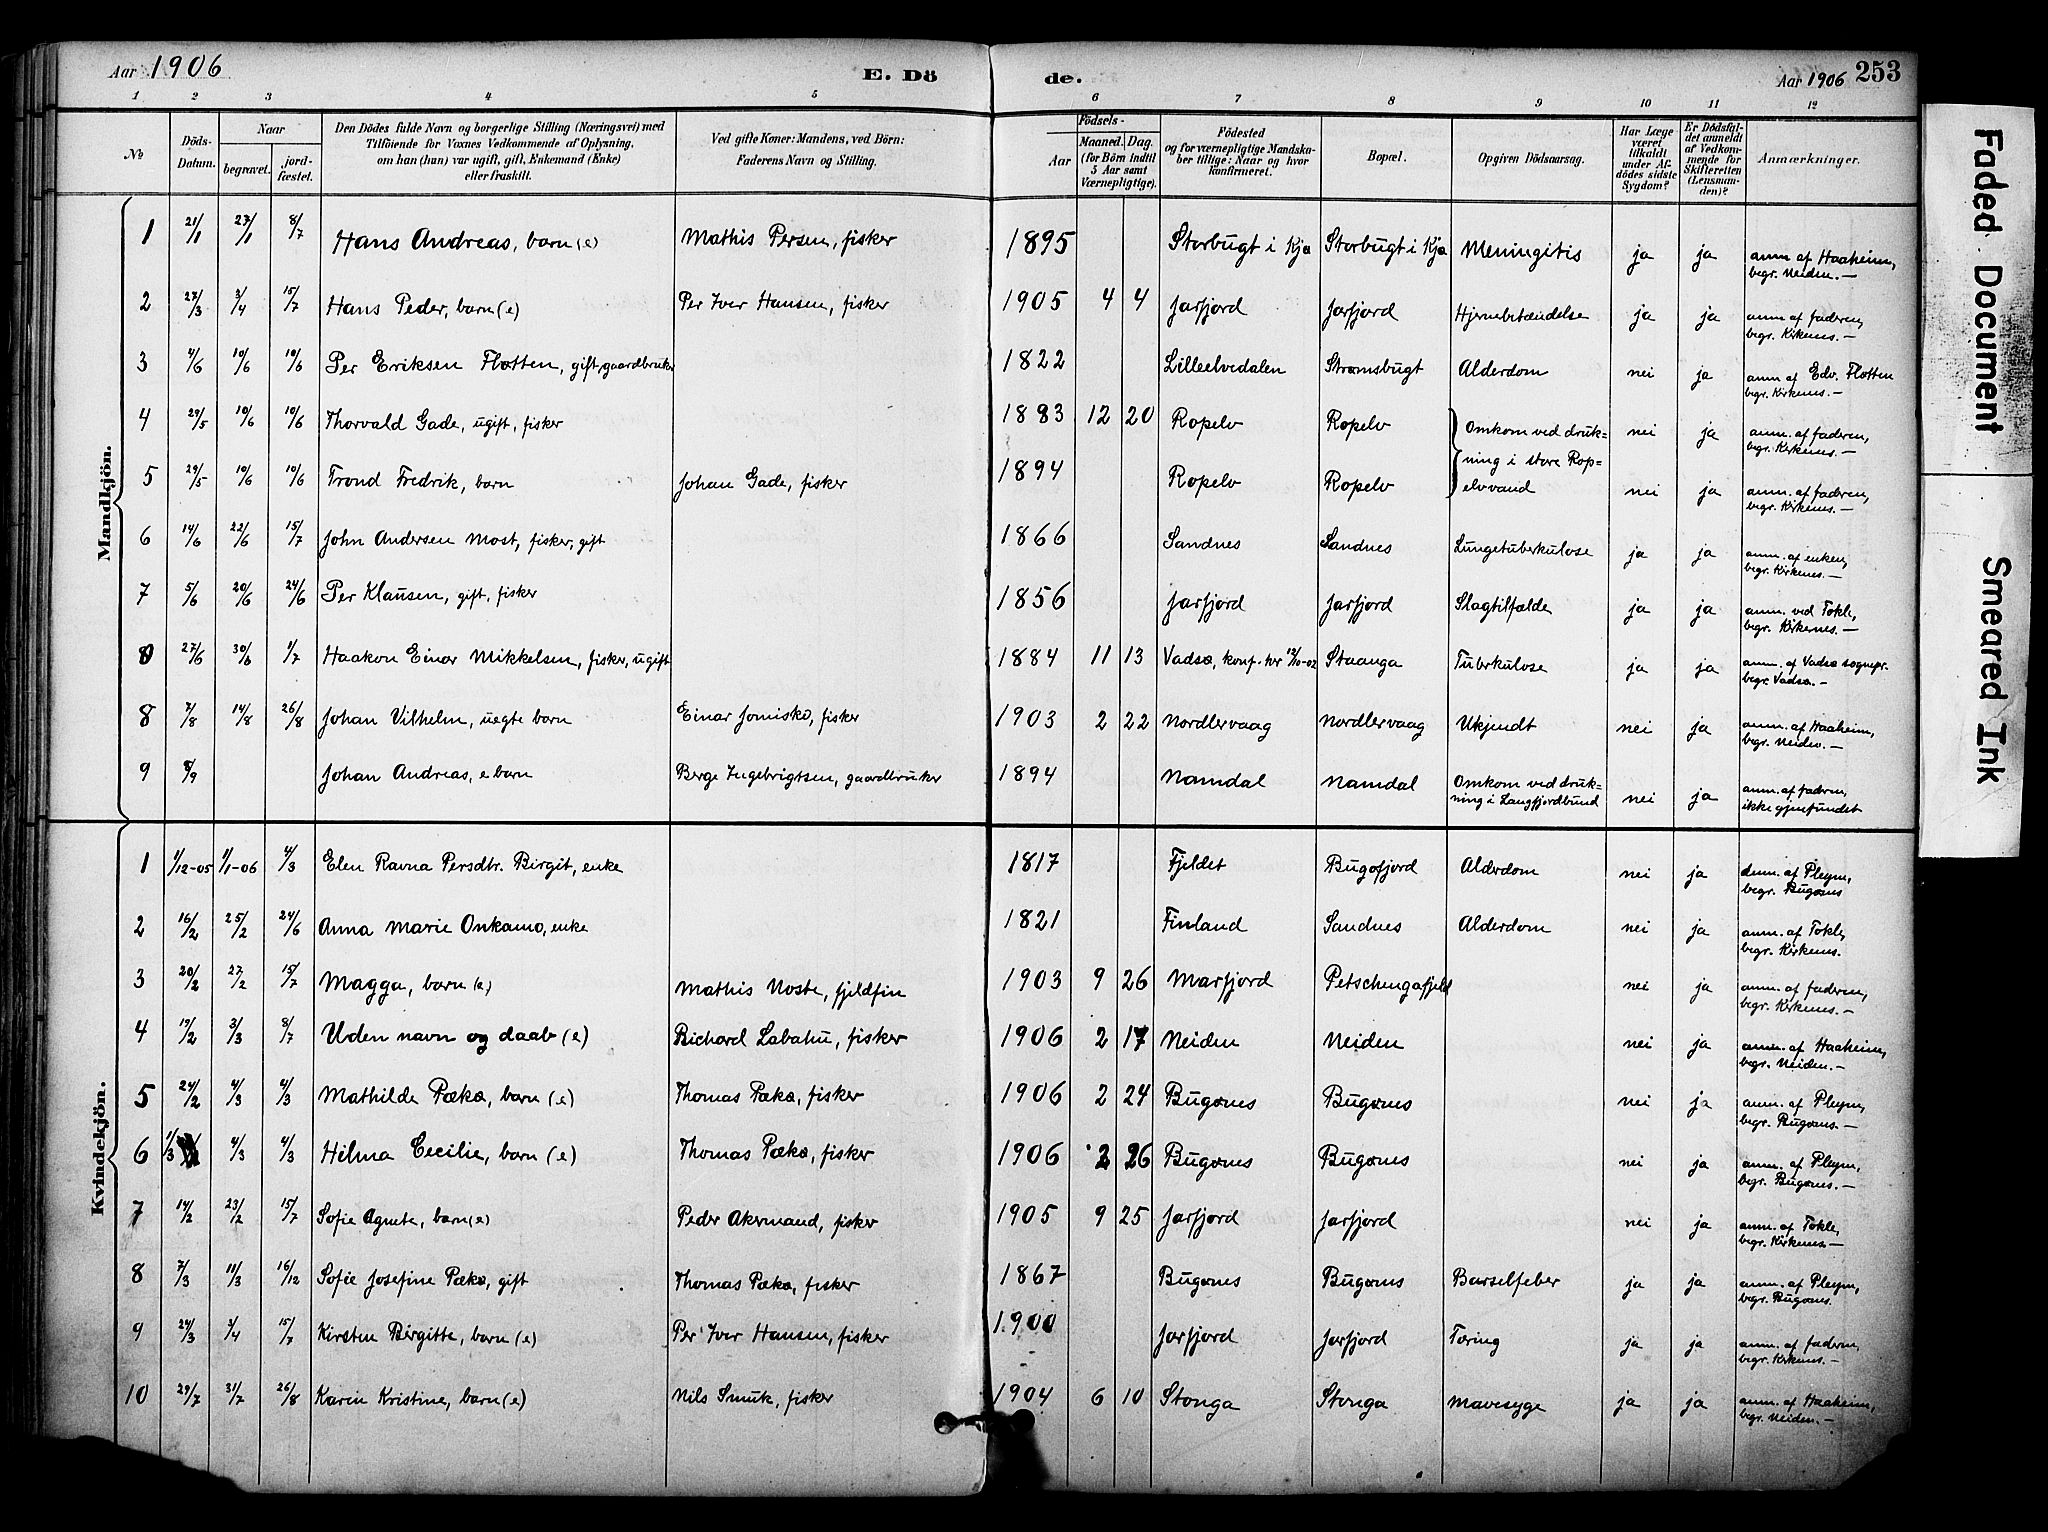 Aar 1906
E. Dö de.
Aar 1906 253
1 2 3 4 5 6 7 8 9 10 11 12
№
Döds-Datum.
Naar
begravet.
jord-fæstet.
Den Dödes fulde Navn og borgerlige Stilling (Næringsvei) med
Tilföiende for Voxnes Vedkommende af Oplysning,
om han (hun) var ugift, gift, Enkemand (Enke)
eller fraskilt.
Ved gifte Koner: Mandens, ved Börn:
Faderens Navn og Stilling.
Födsels-
Aar
Maaned. Dag.
(for Börn indtil
5 Aar samt
Værnepligtige).
Födested
og for værnepligtige Mandska-
ber tillige: Naar og hvor
konfirmeret.
Bopæl.
Opgiven Dödsaarsag.
Har Læge
været
tilkaldt
under Af-
dödes sidste
Sygdom?
Er Dödsfal-
det anmeldt
af Vedkom-
mende for
Skifteretten
(Lensman-
den)?
Anmærkninger.
Mandkjön.
1 21/1 27/1 8/7 Hans Andreas, barn (e) Mathis Persen, fisker 1895 Storbugt i Kjø Storbugt i Kjø Meningitis ja ja anm. af Haaheim,
begr. Neiden.—
2 27/3 3/4 15/7 Hans Peder, barn (e) Per Iver Hansen, fisker 1905 4 4 Jarfjord Jarfjord Hjernebetændelse ja ja anm. af faderen,
begr. Kirkenes.—
3 4/6 10/6 10/6 Per Eriksen Flotten, gift, gaardbruker 1822 Lilleelvedalen Strømsbugt Alderdom nei ja anm. af Edv. Flotten
begr. Kirkenes.—
4 29/5 10/6 10/6 Thorvald Gade, ugift, fisker 1883 12 20 Ropelv Ropelv Omkom ved druk=
ning i store Rop=
elvvand nei ja anm. af faderen,
begr. Kirkenes.—
5 29/5 10/6 10/6 Trond Fredrik, barn Johan Gade, fisker 1894 Ropelv Ropelv nei ja anm. af faderen,
begr. Kirkenes.—
6 14/6 22/6 15/7 John Andersen Most, fisker, gift 1866 Sandnes Sandnes Lungetuberkulose ja ja anm. af enken,
begr. Kirkenes.—
7 5/6 20/6 24/6 Per Klausen, gift, fisker 1856 Jarfjord Jarfjord Slagtilfælde ja ja anm. ved Tokle,
begr. Kirkenes.—
8 27/6 30/6 1/7 Haakon Einar Mikkelsen, fisker, ugift 1884 11 13 Vadsø, konf. her 12/10-02 Staanga Tuberkulose ja ja anm. af Vadsø sognepr.
begr. Vadsø.—
8 7/8 14/8 26/8 Johan Vilhelm, uegte barn Einar Jomisko, fisker 1903 2 22 Nordlervaag Nordlervaag Ukjendt nei ja anm. af Haaheim,
begr. Neiden.—
9 8/9 Johan Andreas, e. barn Berge Ingebrigtsen, gaardbruker 1894 Namdal Namdal Omkom ved druk=
ning i Langfjordbund nei ja anm. af faderen,
ikke gjenfundet
Kvindekjön.
1 1/12-05 1/1-06 4/3 Elen Ravna Persdtr. Birgit, enke 1817 Fjeldet Bugøfjord Alderdom nei ja anm. af Pleym,
begr. Bugønes
2 16/2 25/2 24/6 Anna Marie Onkamo, enke 1821 Finland Sandnes Alderdom nei ja anm. af Tokle,
begr. Kirkenes.
3 20/2 27/2 15/7 Magga, barn (e) Mathis Noste, fjeldfin 1903 9 26 Marfjord Petschengafjeld nei ja anm. af faderen,
begr. Kirkenes.—
4 19/2 3/3 8/7 Uden navn og daab (e) Richard Labahu, fisker 1906 2 17 Neiden Neiden nei ja anm. af Haaheim,
begr. Neiden.—
5 24/2 4/3 4/3 Mathilde Pækø, barn (e) Thomas Pækø, fisker 1906 2 24 Bugønes Bugønes nei ja anm. af Pleym,
begr. Bugønes.—
6 1/3 4/3 4/3 Hilma Cecilie, barn (e) Thomas Pækø, fisker 1906 2 26 Bugønes Bugønes nei ja anm. af Pleym,
begr. Bugønes.—
7 14/2 23/2 15/7 Sofie Agnete, barn (e) Peder Akermand, fisker 1905 9 25 Jarfjord Jarfjord nei ja anm. af Tokle,
begr. Kirkenes.—
8 7/3 11/3 16/12 Sofie Josefine Pækø, gift Thomas Pækø, fisker 1867 Bugønes Bugønes Barselfeber ja ja anm. af Pleym,
begr. Bugønes.
9 24/3 3/4 15/7 Kirsten Birgitte, barn (e) Per Iver Hansen, fisker 1900 Jarfjord Jarfjord Tæring ja ja anm. af faderen,
begr. Kirkenes.—
10 29/7 31/7 26/8 Karin Kristine, barn (e) Nils Smuk, fisker 1904 6 10 Stonga Stonga Mavesyge ja ja anm. af Haaheim,
begr. Neiden.—
Faded Document
Smeared Ink